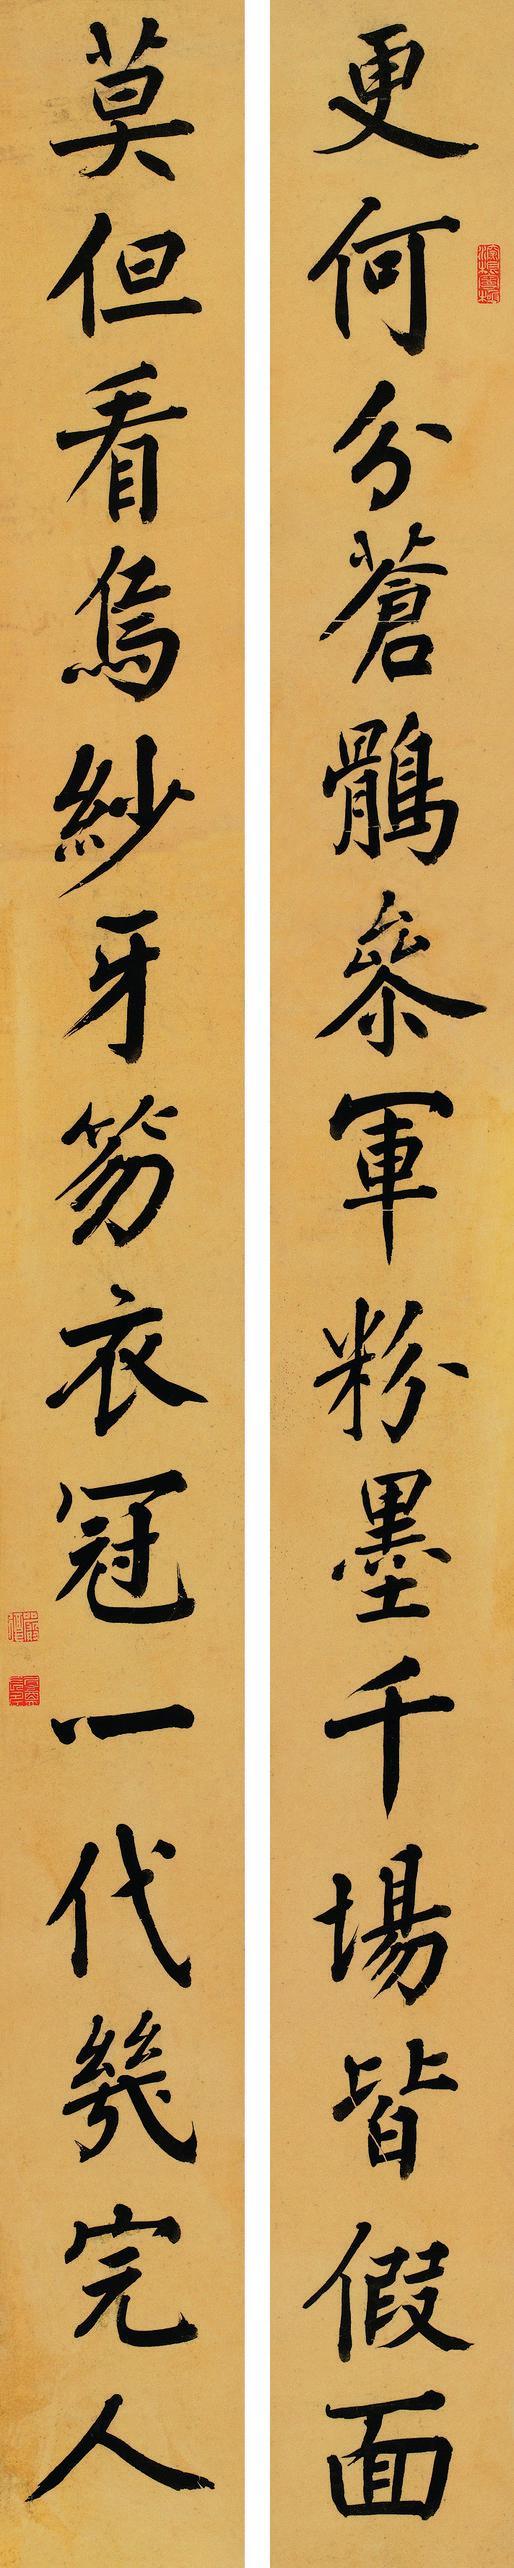 更何分蒼鶻參軍粉墨千場皆假面
莫但看烏紗牙笏衣冠一代幾完人